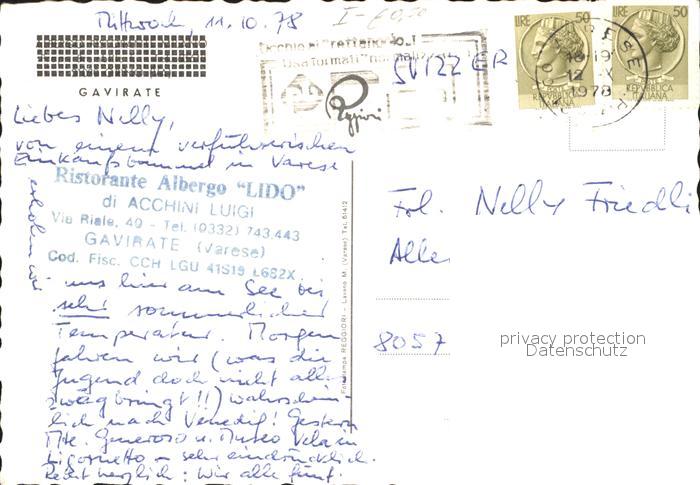 Mittwoch, 11.10.78
I-60,20
GAVIRATE
SVIZZERA
LIRE 50
LIRE 50
REPUBBLICA
ITALIANA
REPUBBLICA
ITALIANA
VARESE
18-19
12
1978
Reggiori
Liebes Nelly,
von einem verführerischen
Einkaufsbummel in Varese
erholen wir
Ristorante Albergo "LIDO"
di ACCHINI LUIGI
Via Riale, 40 - Tel. (0332) 743.443
GAVIRATE (Varese)
Cod. Fisc. CCH LGU 41S19 L682X
uns hier am See bei
sehr sommerlicher
Temperatur. Morgen
fahren wir (was die
Jugend doch nicht alles
zwägbringt!!) wahrschein-
lich nach Venedig! Gestern
Mte. Generoso u. Museo Vela in
Ligornetto - sehr eindrücklich.
Recht herzlich: wir alle fünf.
Fotostampa REGGIORI - Laveno M. (Varese) Tel. 61412
Frl. Nelly Friedli
8057
privacy protection
Datenschutz